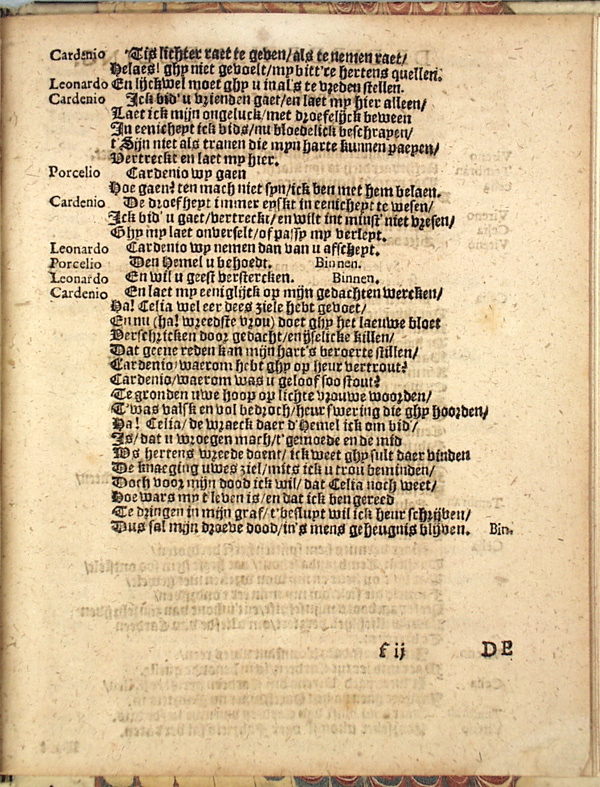 Cardenio 'Tis lichter raet te geven/ als te nemen raet/
Helaes! ghy niet gevoelt/ my bitt're hertens quellen.
Leonardo En lijckwel moet ghy u in al's te vreden stellen.
Cardenio Ick bid' u vrienden gaet/ en laet my hier alleen/
Laet ick mijn ongeluck/ met droefelijck beween
In eenicheyt ick bids/ nu bloedelick beschrayen/
t'Sijn niet als tranen die myn harte kunnen paeyen/
Vertreckt en laet my hier.
Porcelio Cardenio wy gaen
Hoe gaen? ten mach niet syn/ ick ben met hem belaen.
Cardenio De droefheyt immer eyskt in eenicheyt te wesen/
Ick bid' u gaet/ vertreckt/ en wilt int minst' niet vresen/
Ghy my laet onverselt/ of pa'ssp my verleyt.
Leonardo Cardenio wy nemen dan van u afscheyt.
Porcelio Den Hemel u behoedt. Binnen.
Leonardo En wil u geest verstercken. Binnen.
Cardenio En laet my eeniglijck op mijn gedachten wercken/
Ha! Celia wel eer dees ziele hebt gevoet/
En nu (ha! wreedste vrou) doet ghy het laeuwe bloet
Verschricken door gedacht/ en ijselicke killen/
Dat geene reden kan mijn hart's beroerte stillen/
Cardenio/ waerom hebt ghy op heur vertrout?
Cardenio/ waerom was u geloof soo stout?
Te gronden uwe hoop op lichte vrouwe woorden/
T'was valsk en vol bedroch/ heur swering die ghy hoorden/
Ha! Celia/ de wraeck daer d'Hemel ick om bid'/
Is/ dat u wroegen mach/ t'gemoede en de mid
Ws hertens wreede doent/ ick weet ghy sult daer vinden
De knaeging uwes ziel/ mits ick u trou beminden/
Doch voor mijn dood ick wil/ dat Celia noch weet/
Hoe wars my t'leven is/ en dat ick ben gereed
Te dringen in mijn graf/ t'besluyt wil ick heur schrijven/
Dus sal mijn droeve dood/ in's mens geheugnis blijven. Bin.
f ij DE